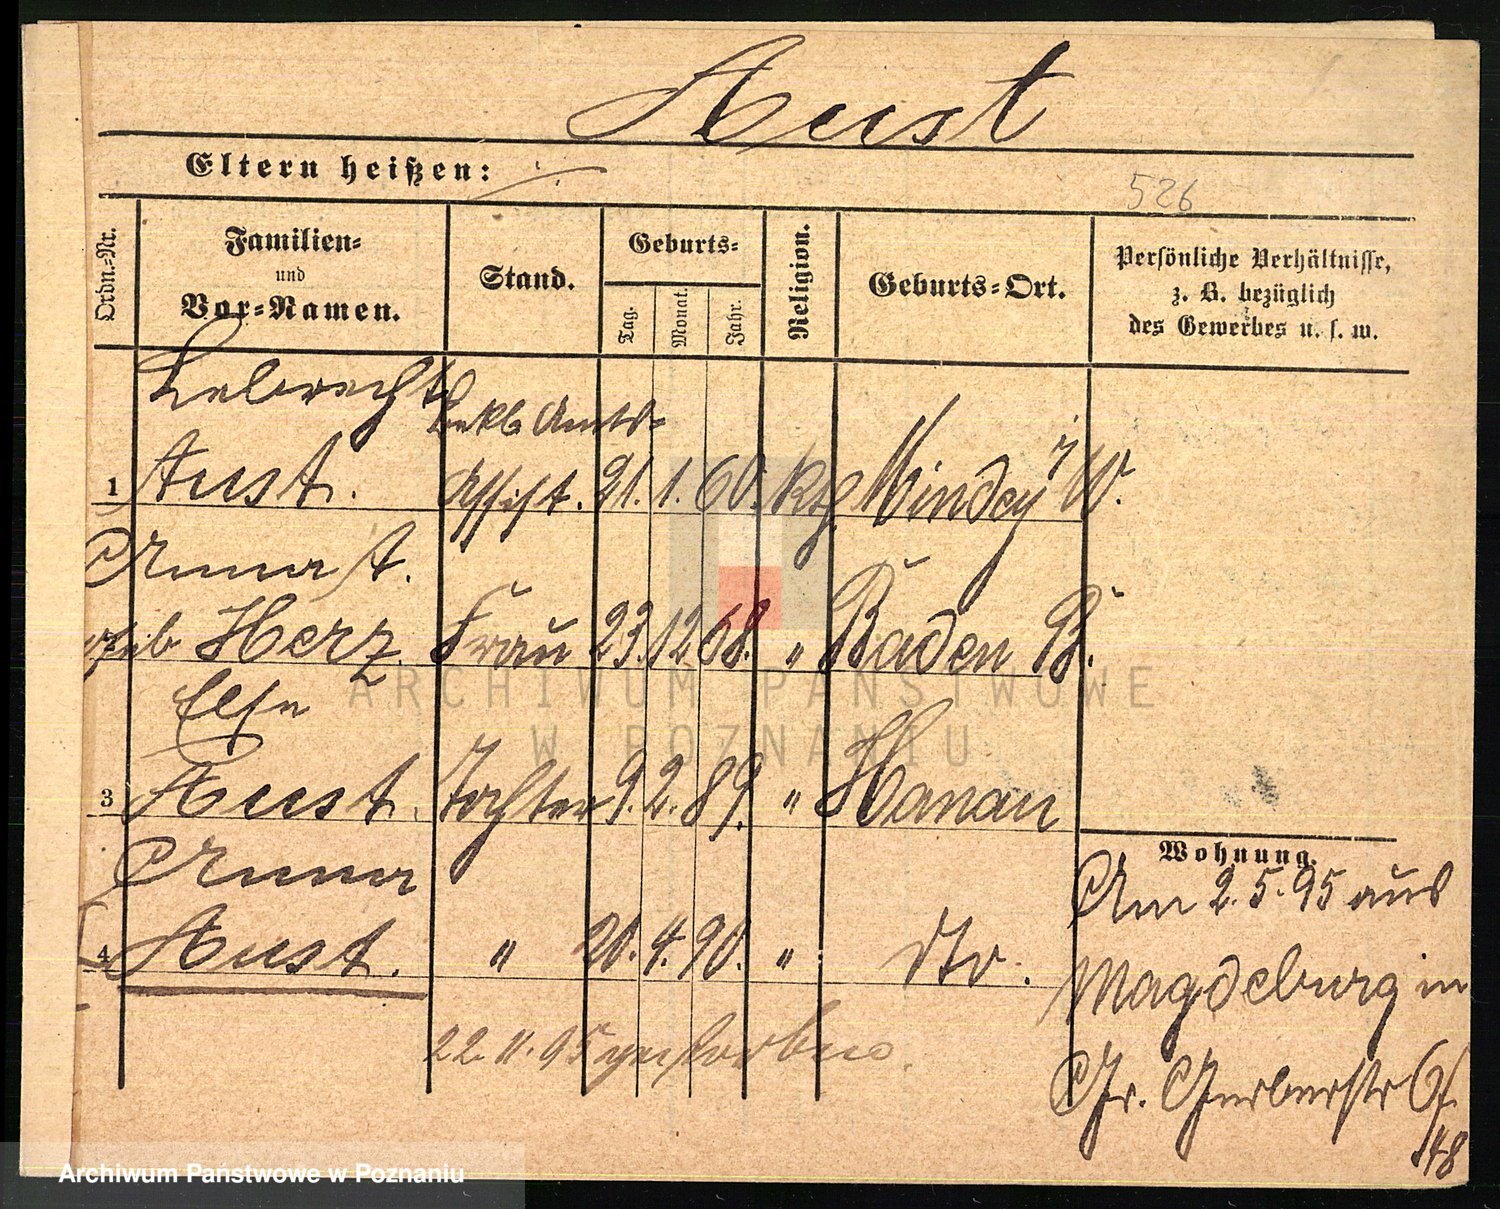 Aust
Eltern heißen:
526
Ordn.-Nr.
Familien-
und
Vor-Namen.
Stand.
Geburts-
Tag.
Monat.
Jahr.
Religion.
Geburts-Ort.
Persönliche Verhältnisse,
z. B. bezüglich
des Gewerbes u. s. w.
Lebrecht
Amts-
1 Aust. Assist. 21. 1. 60. kth. i/W.
Anna A.
geb Herz. Frau 23. 12 68. " Baden B.
Else
3 Aust. Tochter 9. 2. 89. " Hanau
Anna
4 Aust. " 20. 4. 90. " dto.
22. 11. 95 gestorben
Wohnung.
Am 2. 5. 95 aus
Magdeburg in
Gr. Gerberstr
48
ARCHIWUM PAŃSTWOWE
W POZNANIU
Archiwum Państwowe w Poznaniu